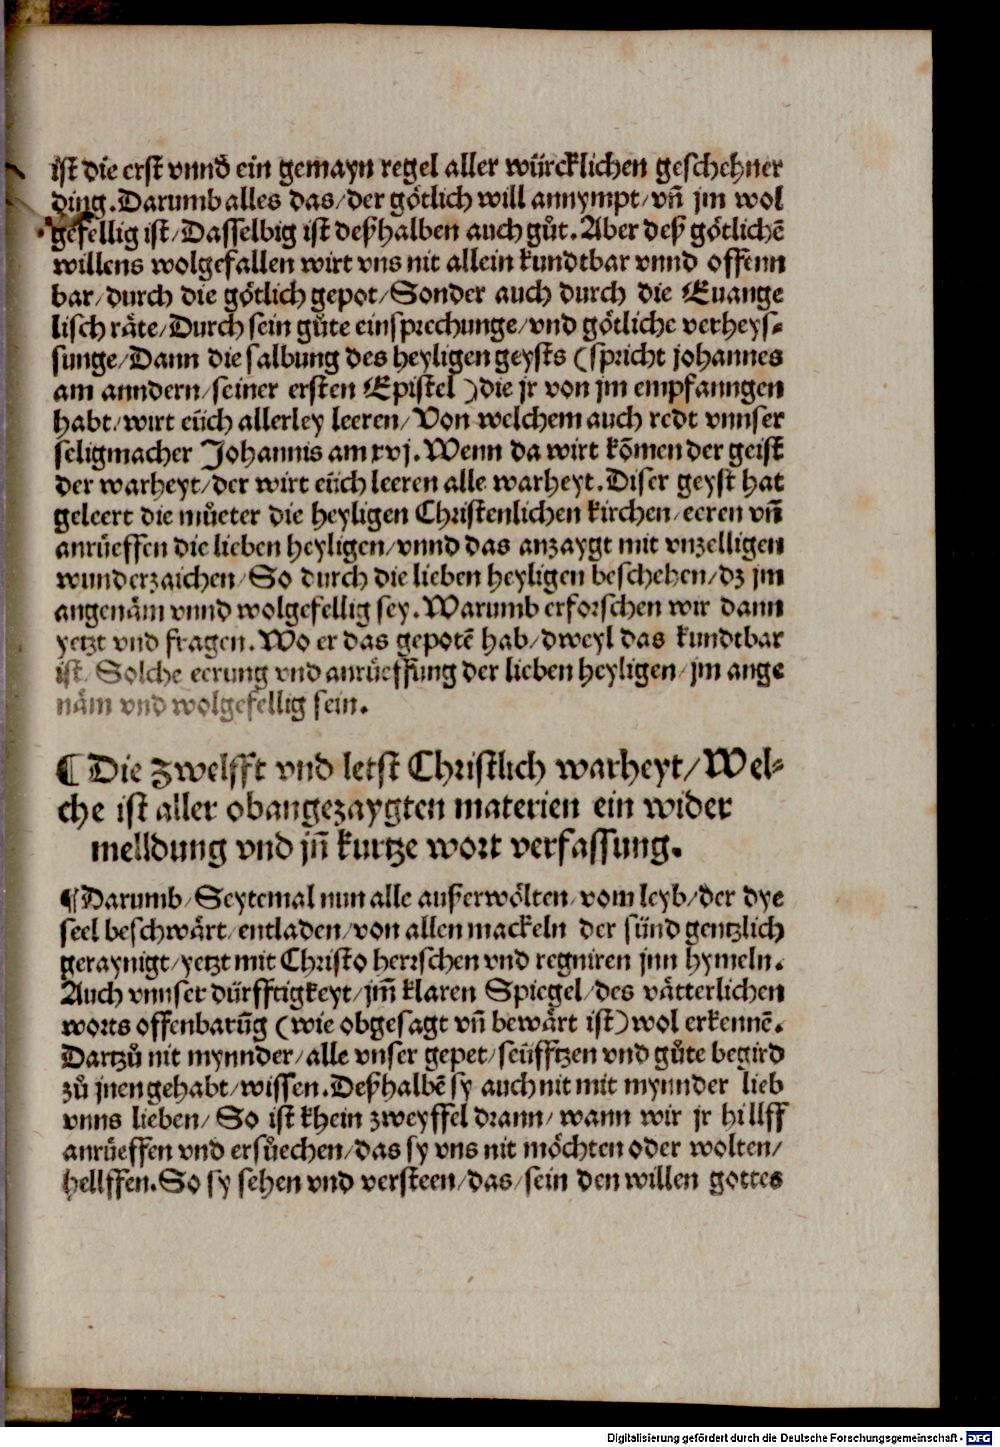 ist die erst vnnd ein gemayn regel aller würcklichen geschehner
ding. Darumb alles das/der götlich will annympt/vñ jm wol
gefellig ist/Dasselbig ist deßhalben auch gůt. Aber deß götlichē
willens wolgefallen wirt vns nit allein kundtbar vnnd offenn
bar/durch die götlich gepot/Sonder auch durch die Euange
lisch räte/Durch sein gůte einsprechunge/vnd götliche verheys⸗
sunge/Dann die salbung des heyligen geysts (spricht johannes
am anndern/seiner ersten Epistel) die jr von jm empfanngen
habt/wirt eüch allerley leeren/Von welchem auch redt vnnser
seligmacher Johannis am xvj. Wenn da wirt kōmen der geist
der warheyt/der wirt eüch leeren alle warheyt. Diser geyst hat
geleert die můeter die heyligen Christenlichen kirchen/eeren vñ
anrüeffen die lieben heyligen/vnnd das anzaygt mit vnzelligen
wunderzaichen/So durch die lieben heyligen beschehen/dz jm
angenäm vnnd wolgefellig sey. Warumb erforschen wir dann
yetzt vnd fragen. Wo er das gepotē hab/dweyl das kundtbar
ist/Solche eerung vnd anrüeffung der lieben heyligen/jm ange
näm vnd wolgefellig sein.
¶ Die zwelfft vnd letst Christlich warheyt/Wel⸗
che ist aller obangezaygten materien ein wider
melldung vnd jñ kurtze wort verfassung.
¶ Darumb/Seytemal nun alle außerwölten/vom leyb/der dye
seel beschwärt/entladen/von allen mackeln der sünd gentzlich
geraynigt/yetzt mit Christo herrschen vnd regniren jnn hymeln.
Auch vnnser dürfftigkeyt/jm̄ klaren Spiegel/des vätterlichen
worts offenbarūg (wie obgesagt vñ bewärt ist) wol erkennē.
Dartzů nit mynnder/alle vnser gepet/seüfftzen vnd gůte begird
zů jnen gehabt/wissen. Deßhalbē sy auch nit mit mynnder lieb
vnns lieben/So ist khein zweyffel drann/wann wir jr hillff
anrüeffen vnd ersůechen/das sy vns nit möchten oder wolten/
hellffen. So sy sehen vnd versteen/das/sein den willen gottes
Digitalisierung gefördert durch die Deutsche Forschungsgemeinschaft - DFG